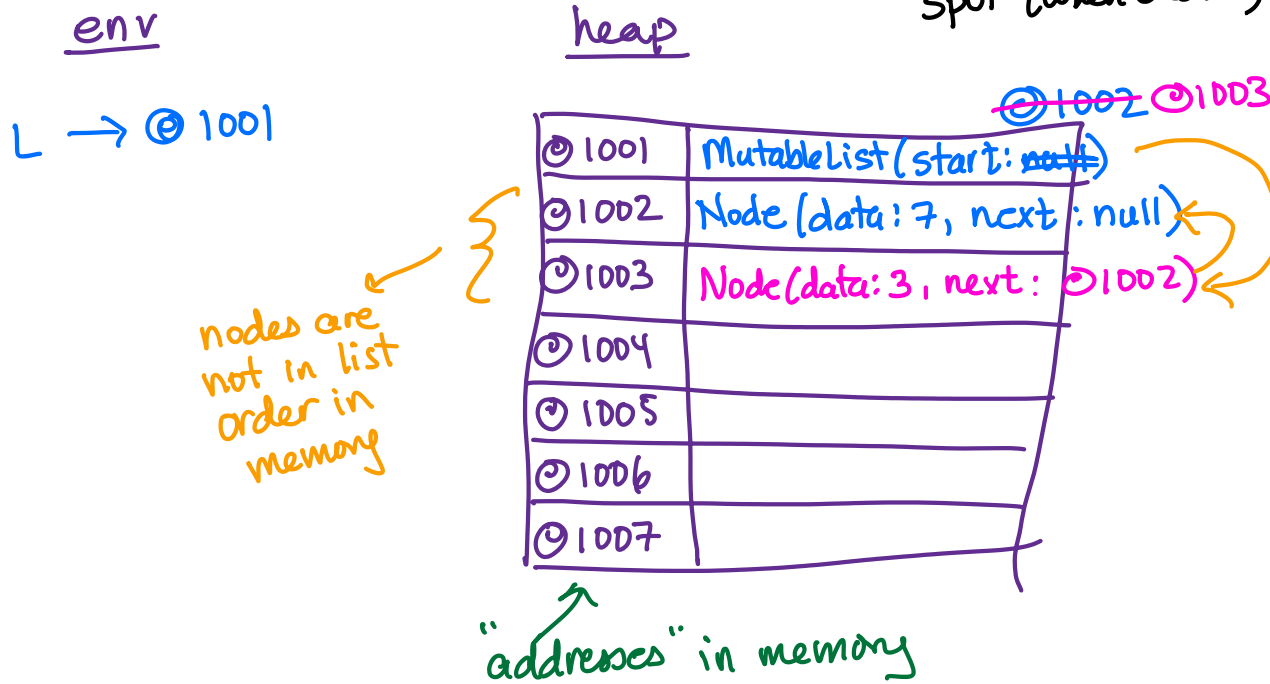 spot
env
heap
L → @ 1001
@1002 @1003
@ 1001 MutableList(start: null)
@ 1002 Node (data: 7, next : null)
@ 1003 Node(data: 3, next: @1002)
@ 1004
@ 1005
@ 1006
@ 1007
nodes are
not in list
order in
memory
"addresses" in memory